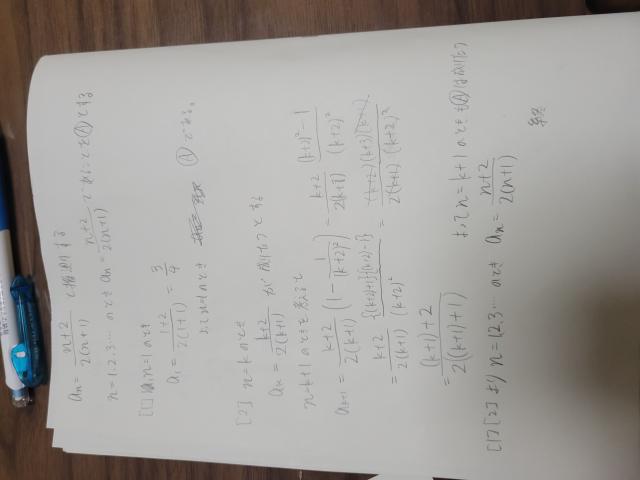 an = n+2/2(n+1) と推測する
n=1,2,3… のとき an = n+2/2(n+1) であることをⒶとする
[1] n=1のとき
a1 = 1+2/2(1+1) = 3/4
よって n=1のとき Ⓐである。
[2] n=kのとき
ak = k+2/2(k+1) が成り立つとする
n=k+1のときを考えると
ak+1 = k+2/2(k+1) (1 - 1/(k+2)²) = k+2/2(k+1) (k+2)²-1/(k+2)²
= k+2/2(k+1) {(k+2)+1}{(k+2)-1}/(k+2)² =
= (k+1)+2/2((k+1)+1)
よって n=k+1 のときもⒶは成り立つ
[1][2]より n=1,2,3… のとき an = n+2/2(n+1)
終